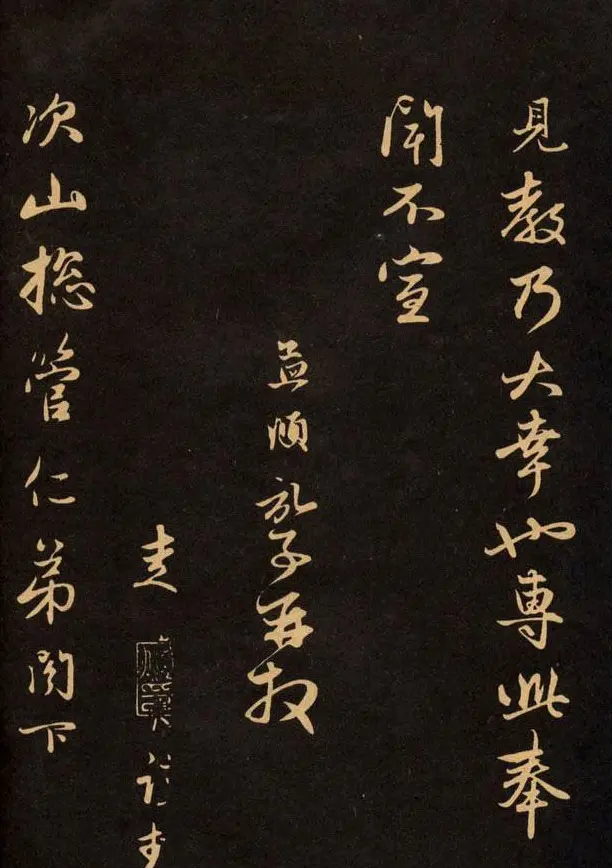 見教乃大幸也專此奉
聞不宣
孟頫
次山總管仁弟閣下